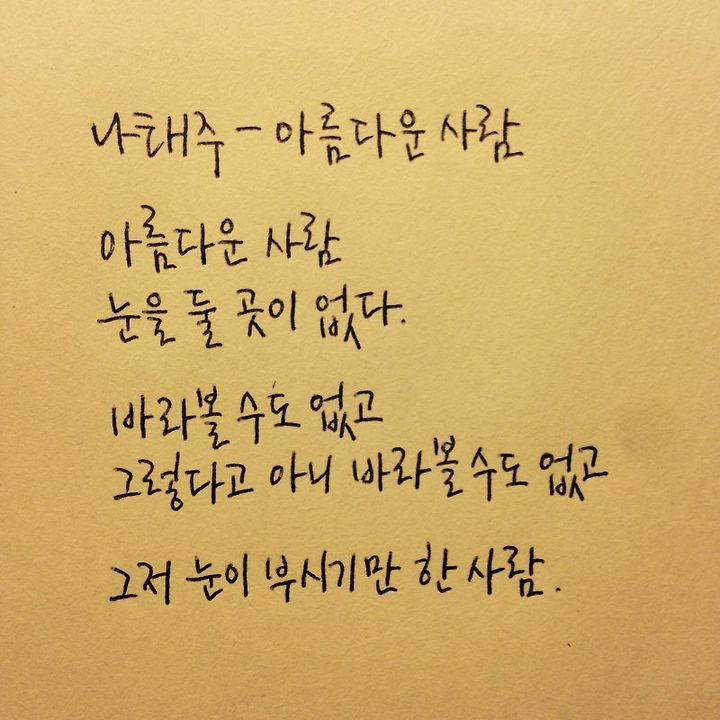 나태주 - 아름다운 사람
아름다운 사람
눈을 둘 곳이 없다.
바라볼 수도 없고
그렇다고 아니 바라볼 수도 없고
그저 눈이 부시기만 한 사람.